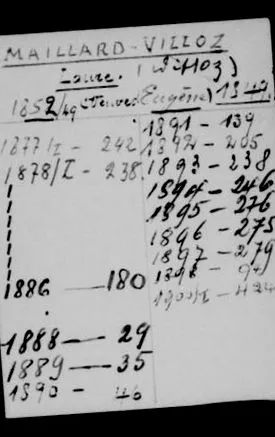 MAILLARD-VILLOZ
Laure.
1852/49 (Veuve Eugène) 1849
1877/I - 242
1878/I - 238
1886 — 180
1888 — 29
1889 — 35
1890 - 46
1891 - 139
1892 - 205
1893 - 238
1894 - 246
1895 - 276
1896 - 275
1897 - 279
1898 -
1900/I - 424